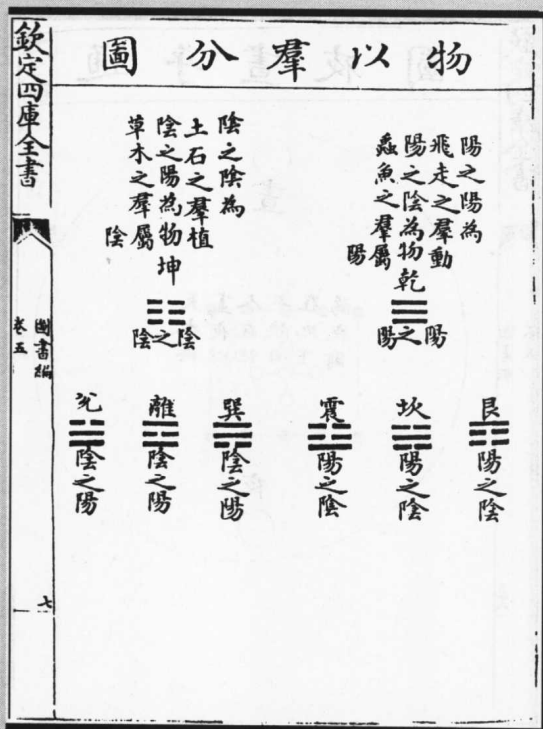 物以羣分圖
陽之陽為
飛走之羣動
陽之陰為物乾
蟲魚之羣屬
陽
陽之陽
陰之陰為
土石之羣植
陰之陽為物坤
草木之羣屬
陰
陰之陰
艮
陽之陰
坎
陽之陰
震
陽之陰
巽
陰之陽
離
陰之陽
兌
陰之陽
欽定四庫全書
圖書編
卷五
七